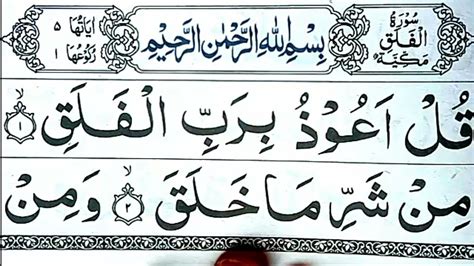 سُوْرَةُ الْفَلَقِ مَكِّيَّةٌ
بِسْمِ اللهِ الرَّحْمٰنِ الرَّحِيْمِ
اٰيَاتُهَا ٥ رُكُوْعُهَا ١
قُلْ اَعُوْذُ بِرَبِّ الْفَلَقِ ۙ ١
مِنْ شَرِّ مَا خَلَقَ ۙ ٢ وَمِنْ